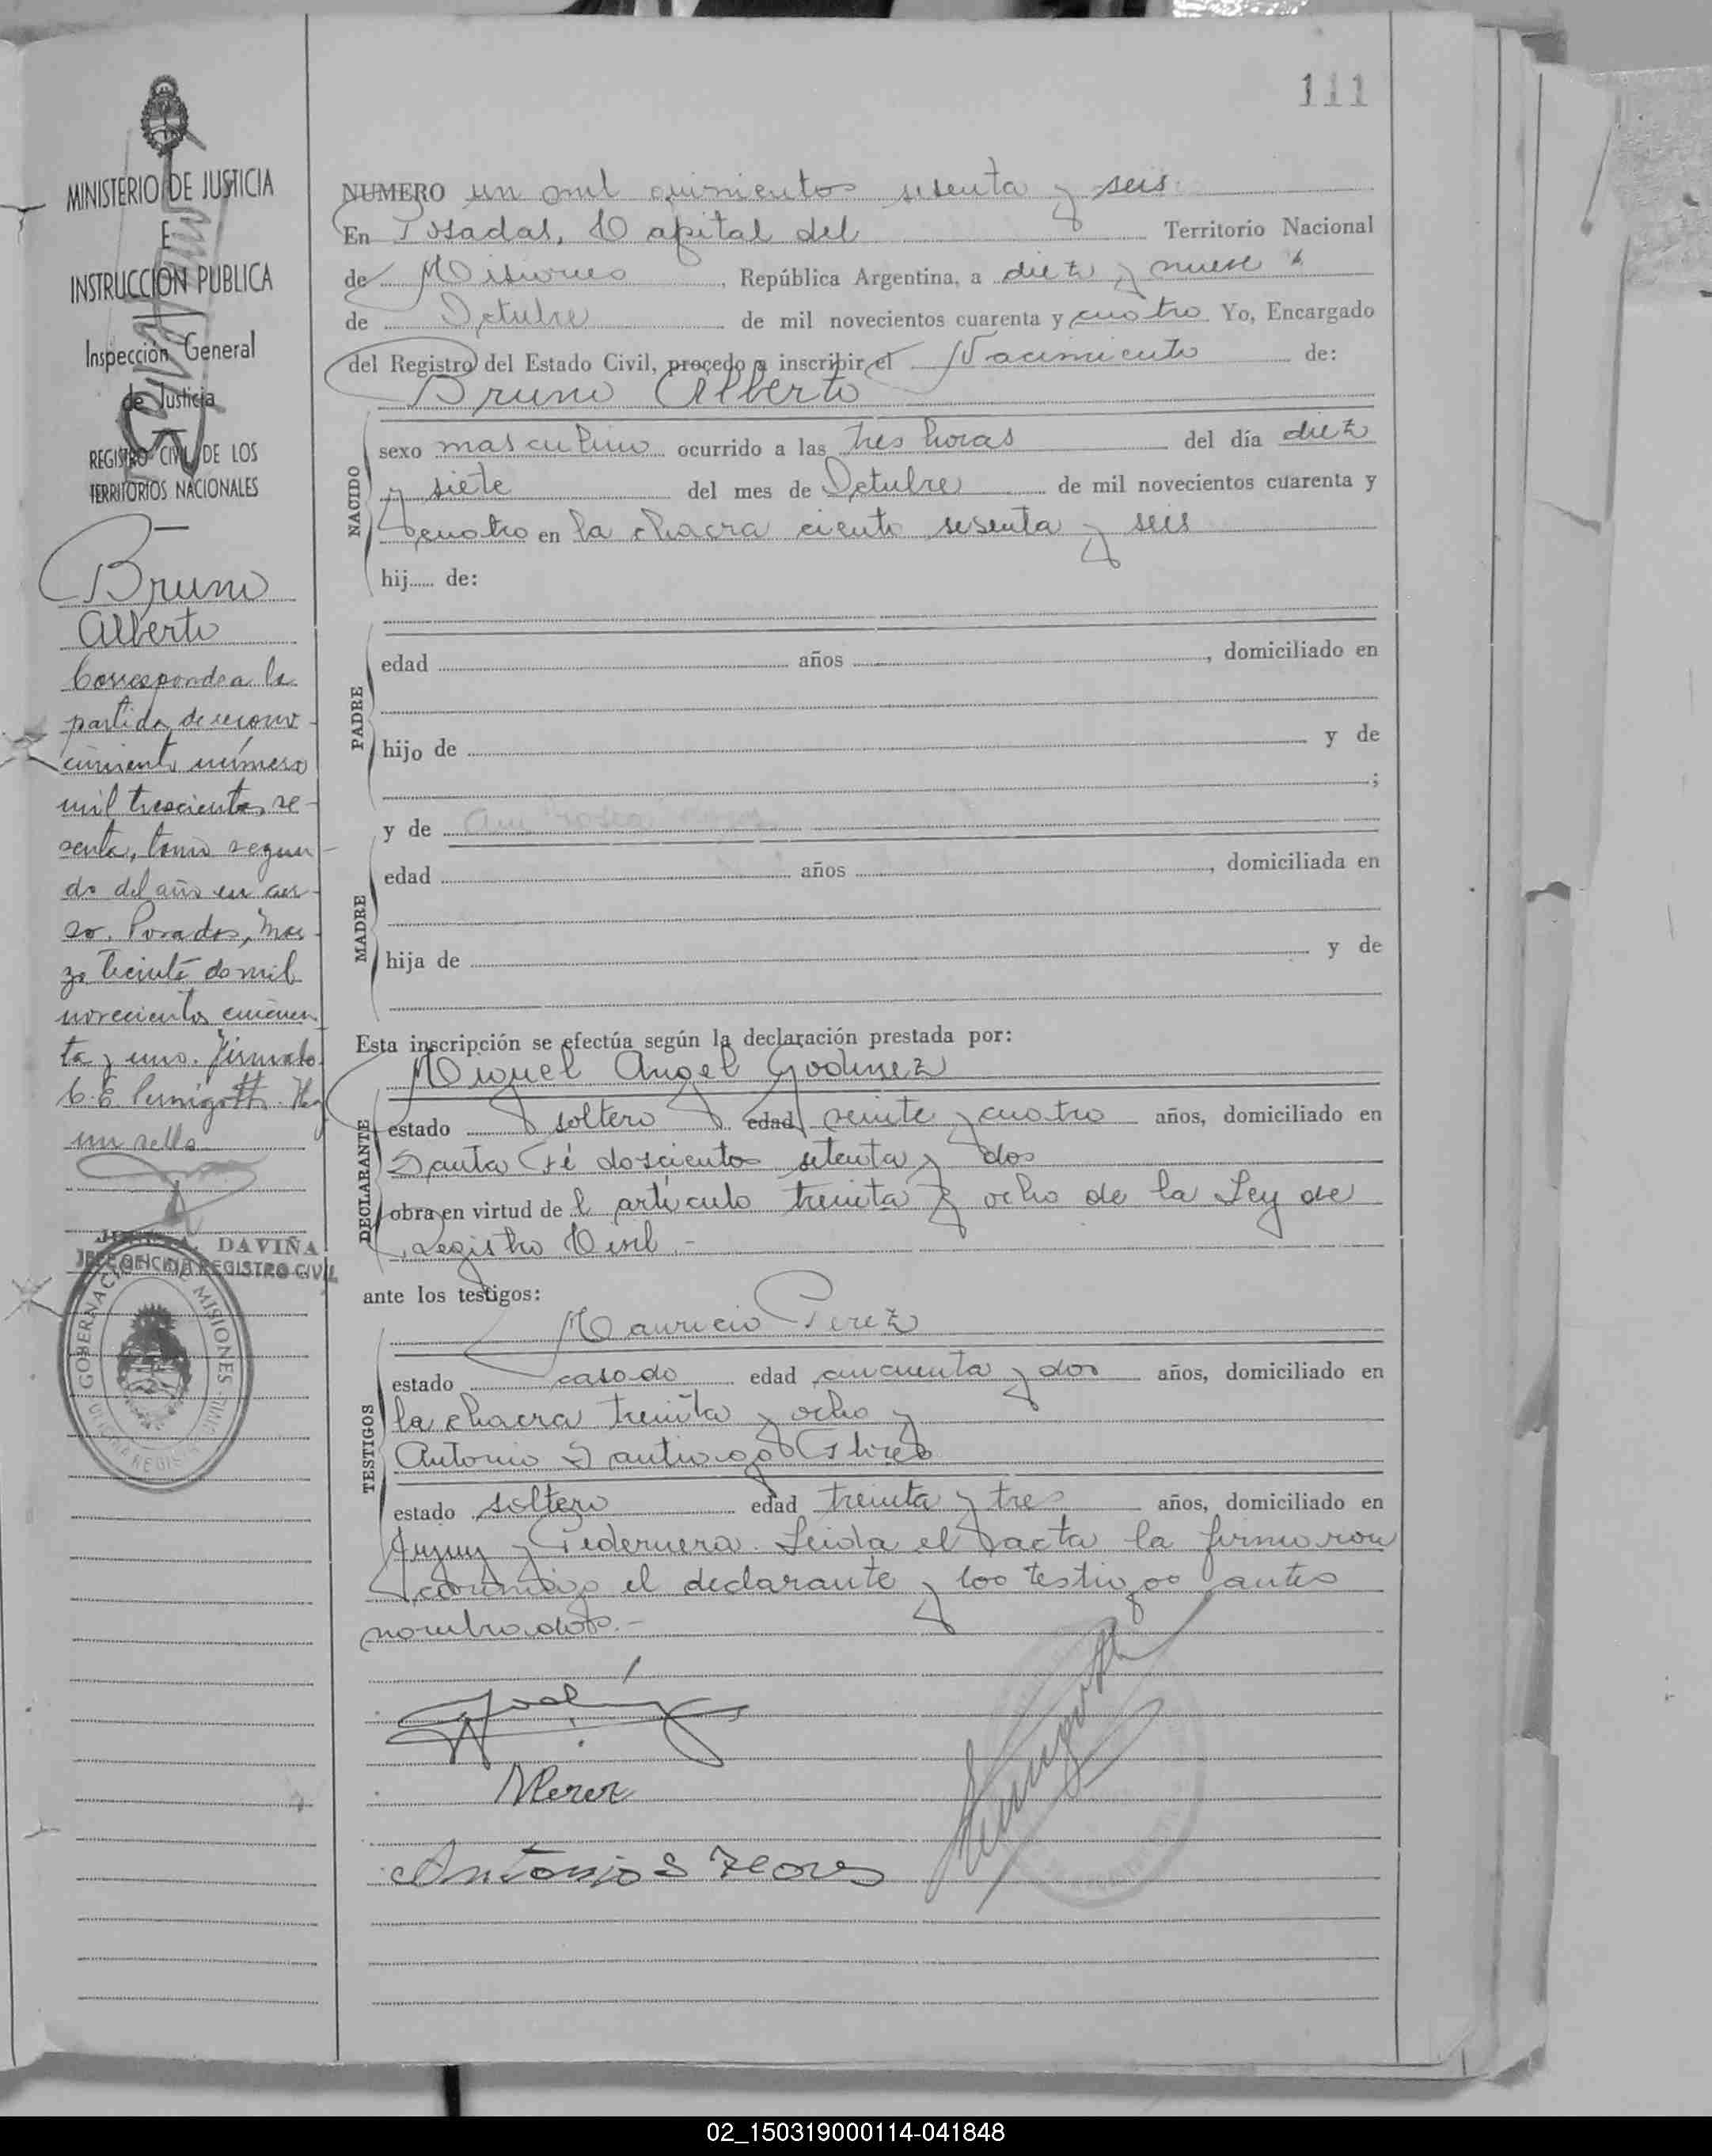 111
MINISTERIO DE JUSTICIA
E
INSTRUCCION PUBLICA
Inspección General
de Justicia
REGISTRO CIVIL DE LOS
TERRITORIOS NACIONALES
Bruno
Alberto
Corresponde a la
partida de recono-
cimiento número
mil trescientos se-
senta, tomo segun-
do del año en cur-
so. Posadas, Mar-
zo treinta de mil
novecientos cincuen-
ta y uno. Firmado.
C. E. Hay
un sello
DAVIÑA
JEFE OFICINA REGISTRO CIVIL
GOBERNACION DE MISIONES
NUMERO un mil quinientos sesenta y seis
En Posadas, Capital del Territorio Nacional
de Misiones, República Argentina, a diez y nueve
de Octubre de mil novecientos cuarenta y cuatro Yo, Encargado
del Registro del Estado Civil, procedo a inscribir el Nacimiento de:
Bruno Alberto
NACIDO
sexo masculino ocurrido a las tres horas del día diez
y siete del mes de Octubre de mil novecientos cuarenta y
cuatro en la chacra ciento sesenta y seis
hij...... de:
PADRE
edad años , domiciliado en
hijo de y de
;
y de
MADRE
edad años , domiciliada en
hija de y de
Esta inscripción se efectúa según la declaración prestada por:
Miguel Angel Godinez
DECLARANTE
estado soltero edad veinte y cuatro años, domiciliado en
Santa Fé doscientos setenta y dos
obra en virtud de l artículo treinta y ocho de la Ley de
Registro Civil.-
ante los testigos:
Mauricio Perez
TESTIGOS
estado casado edad cincuenta y dos años, domiciliado en
la chacra treinta y ocho y
Antonio Santiago Flores
estado soltero edad treinta y tres años, domiciliado en
Jujuy y Pedernera. Leida el acta la firmaron
conmigo el declarante y los testigos antes
nombrados.-
MPerez
Antonio S Flores
02_150319000114-041848